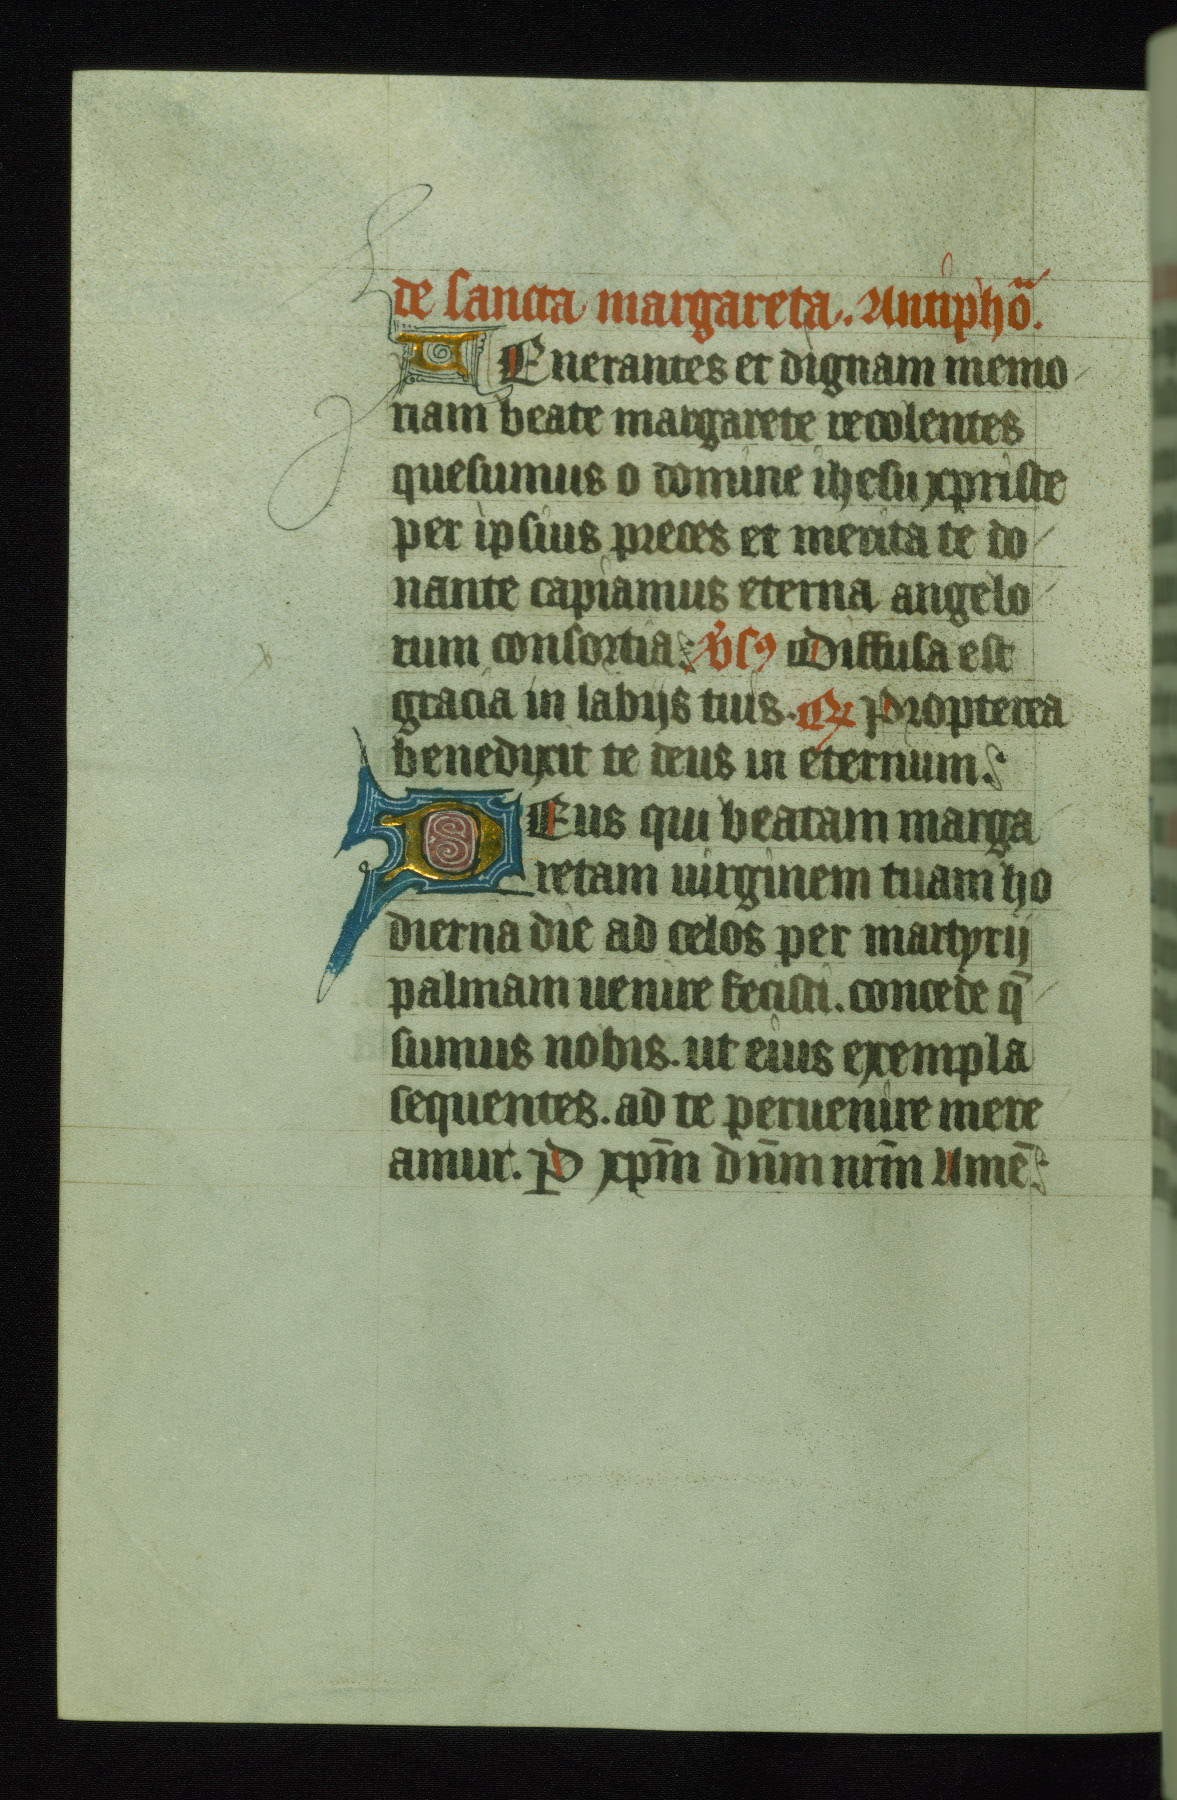 de sancta margareta. Antipho᷑.
VEnerantes et dignam memo
riam beate margarete recolentes
quesumus o domine ihesu xpriste
per ipsius preces et merita te do
nante capiamus eterna angelo
rum consortia: v̾sꝰ Diffusa est
gracia in labijs tuis. ℞ Propterea
benedixit te deus in eternum.
DEus qui beatam marga
retam uirginem tuam ho
dierna die ad celos per martyrij
palmam uenire fecisti. concede q̄
sumus nobis. ut eius exempla
sequentes. ad te peruenire mere
amur. P xp̄m dn̄m nrm̄ Amē